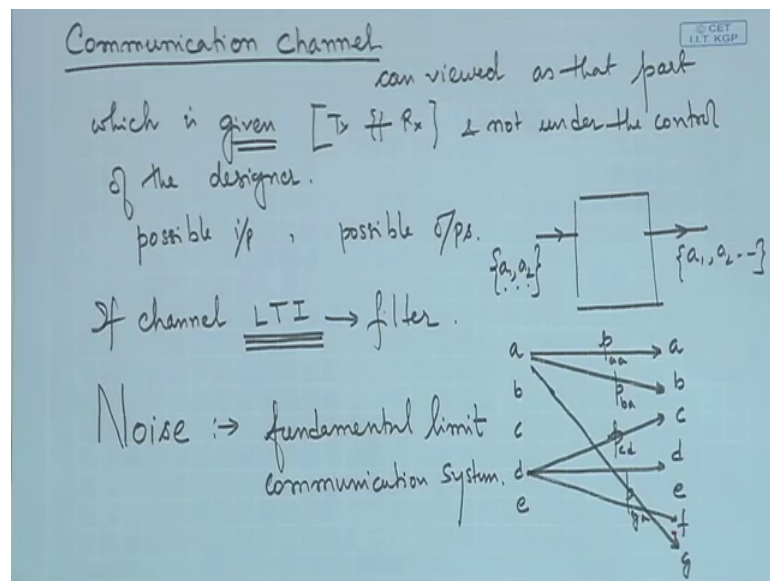 Communication Channel
© CET
I.I.T. KGP
can viewed as that part
which is given [Tx & Rx] & not under the control
of the designer.
possible i/p , possible o/ps.
{a1, a2 ...}
{a1, a2 --}
If channel LTI → filter.
Noise :→ fundamental limit
communication system.
a
b
c
d
e
Paa
Pba
Pcd
Pga
a
b
c
d
e
f
g